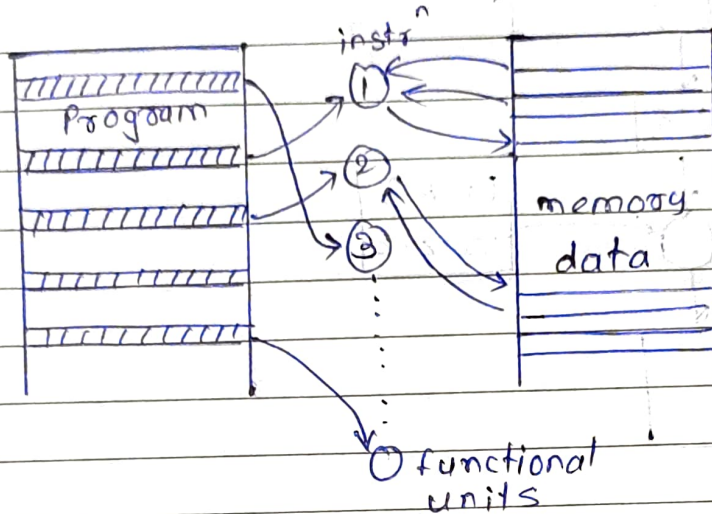 instrⁿ
Program
1
2
3
memory
data
functional
units